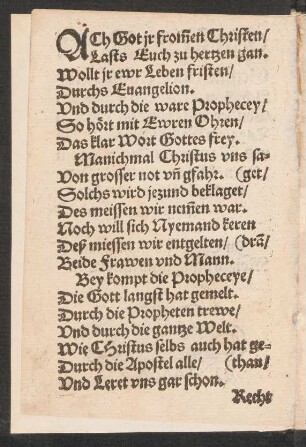 ACh Got jr from̃en Christen/
Lasts Euch zu hertzen gan.
Wollt jr ewr Leben fristen/
Durchs Euangelion.
Vnd durch die ware Prophecey/
So hört mit Ewren Ohren/
Das klar Wort Gottes frey.
Manichmal Christus vns sa-
Von grosser not vñ gfahr. (get/
Solchs wird jezund beklaget/
Des meissen wir nem̃en war.
Noch will sich Nyemand keren
Deß miessen wir entgelten/ (drã/
Beide Frawen vnd Mann.
Bey kompt die Propheceye/
Die Gott langst hat gemelt.
Durch die Propheten trewe/
Vnd durch die gantze Welt.
Wie CHristus selbs auch hat ge-
Durch die Apostel alle/ (than/
Vnd Leret vns gar schon.
Recht